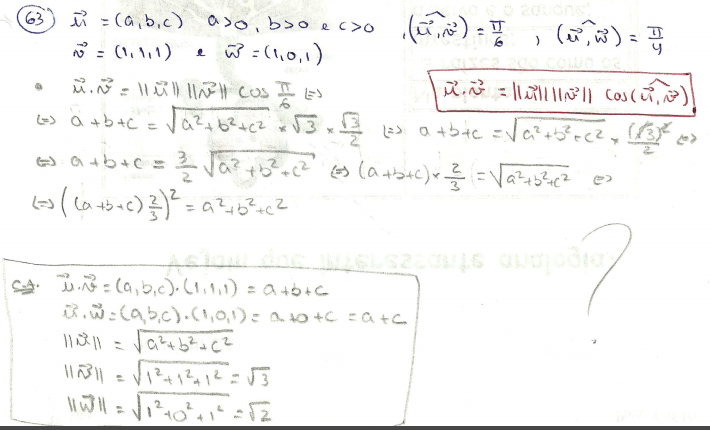 63) u⃗ = (a,b,c) a>0, b>0 e c>0 , (u⃗,^v⃗) = π/6 , (u⃗,^w⃗) = π/4
v⃗ = (1,1,1) e w⃗ = (1,0,1)
• u⃗.v⃗ = ||u⃗|| ||v⃗|| cos π/6 (=)
u⃗.v⃗ = ||u⃗|| ||v⃗|| cos(u⃗,^v⃗)
(=) a+b+c = √(a²+b²+c²) × √3 × √3/2 (=) a+b+c = √(a²+b²+c²) × (√3)²/2 (=)
(=) a+b+c = 3/2 √(a²+b²+c²) (=) (a+b+c) × 2/3 = √(a²+b²+c²) (=)
(=) ((a+b+c) 2/3)² = a²+b²+c²
?
C.A. u⃗.v⃗ = (a,b,c).(1,1,1) = a+b+c
u⃗.w⃗ = (a,b,c).(1,0,1) = a+0+c = a+c
||u⃗|| = √(a²+b²+c²)
||v⃗|| = √(1²+1²+1²) = √3
||w⃗|| = √(1²+0²+1²) = √2